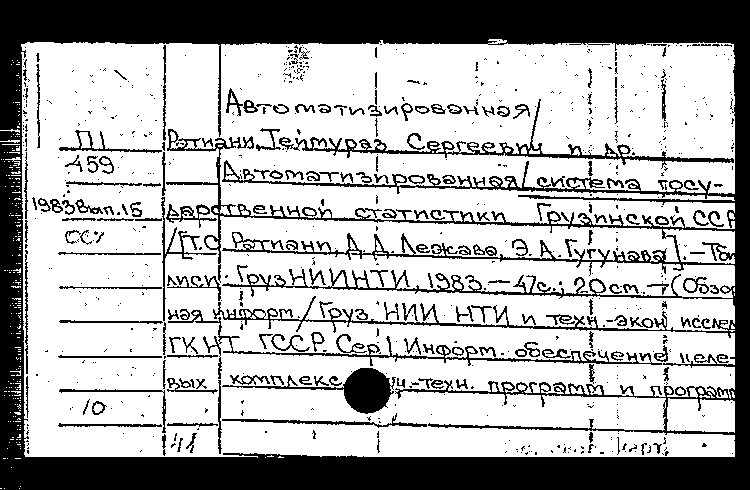 Автоматизированная/
П1 Ратиани, Теймураз Сергеевич и др.
459 Автоматизированная/ система госу-
1983 Вып.15 дарственной статистики Грузинской ССР
/[Т.С. Ратиани, Д.Д. Лежава, Э.А. Гугунава]. — Тби
лиси: ГрузНИИНТИ, 1983. — 47с.; 20 ст. — (Обзор
ная информ. / Груз. НИИ НТИ и техн.-экон. исслед
ГКНТ ГССР. Сер 1, Информ. обеспечение целе-
вых комплекс ч.-техн. программ и програм
10
41